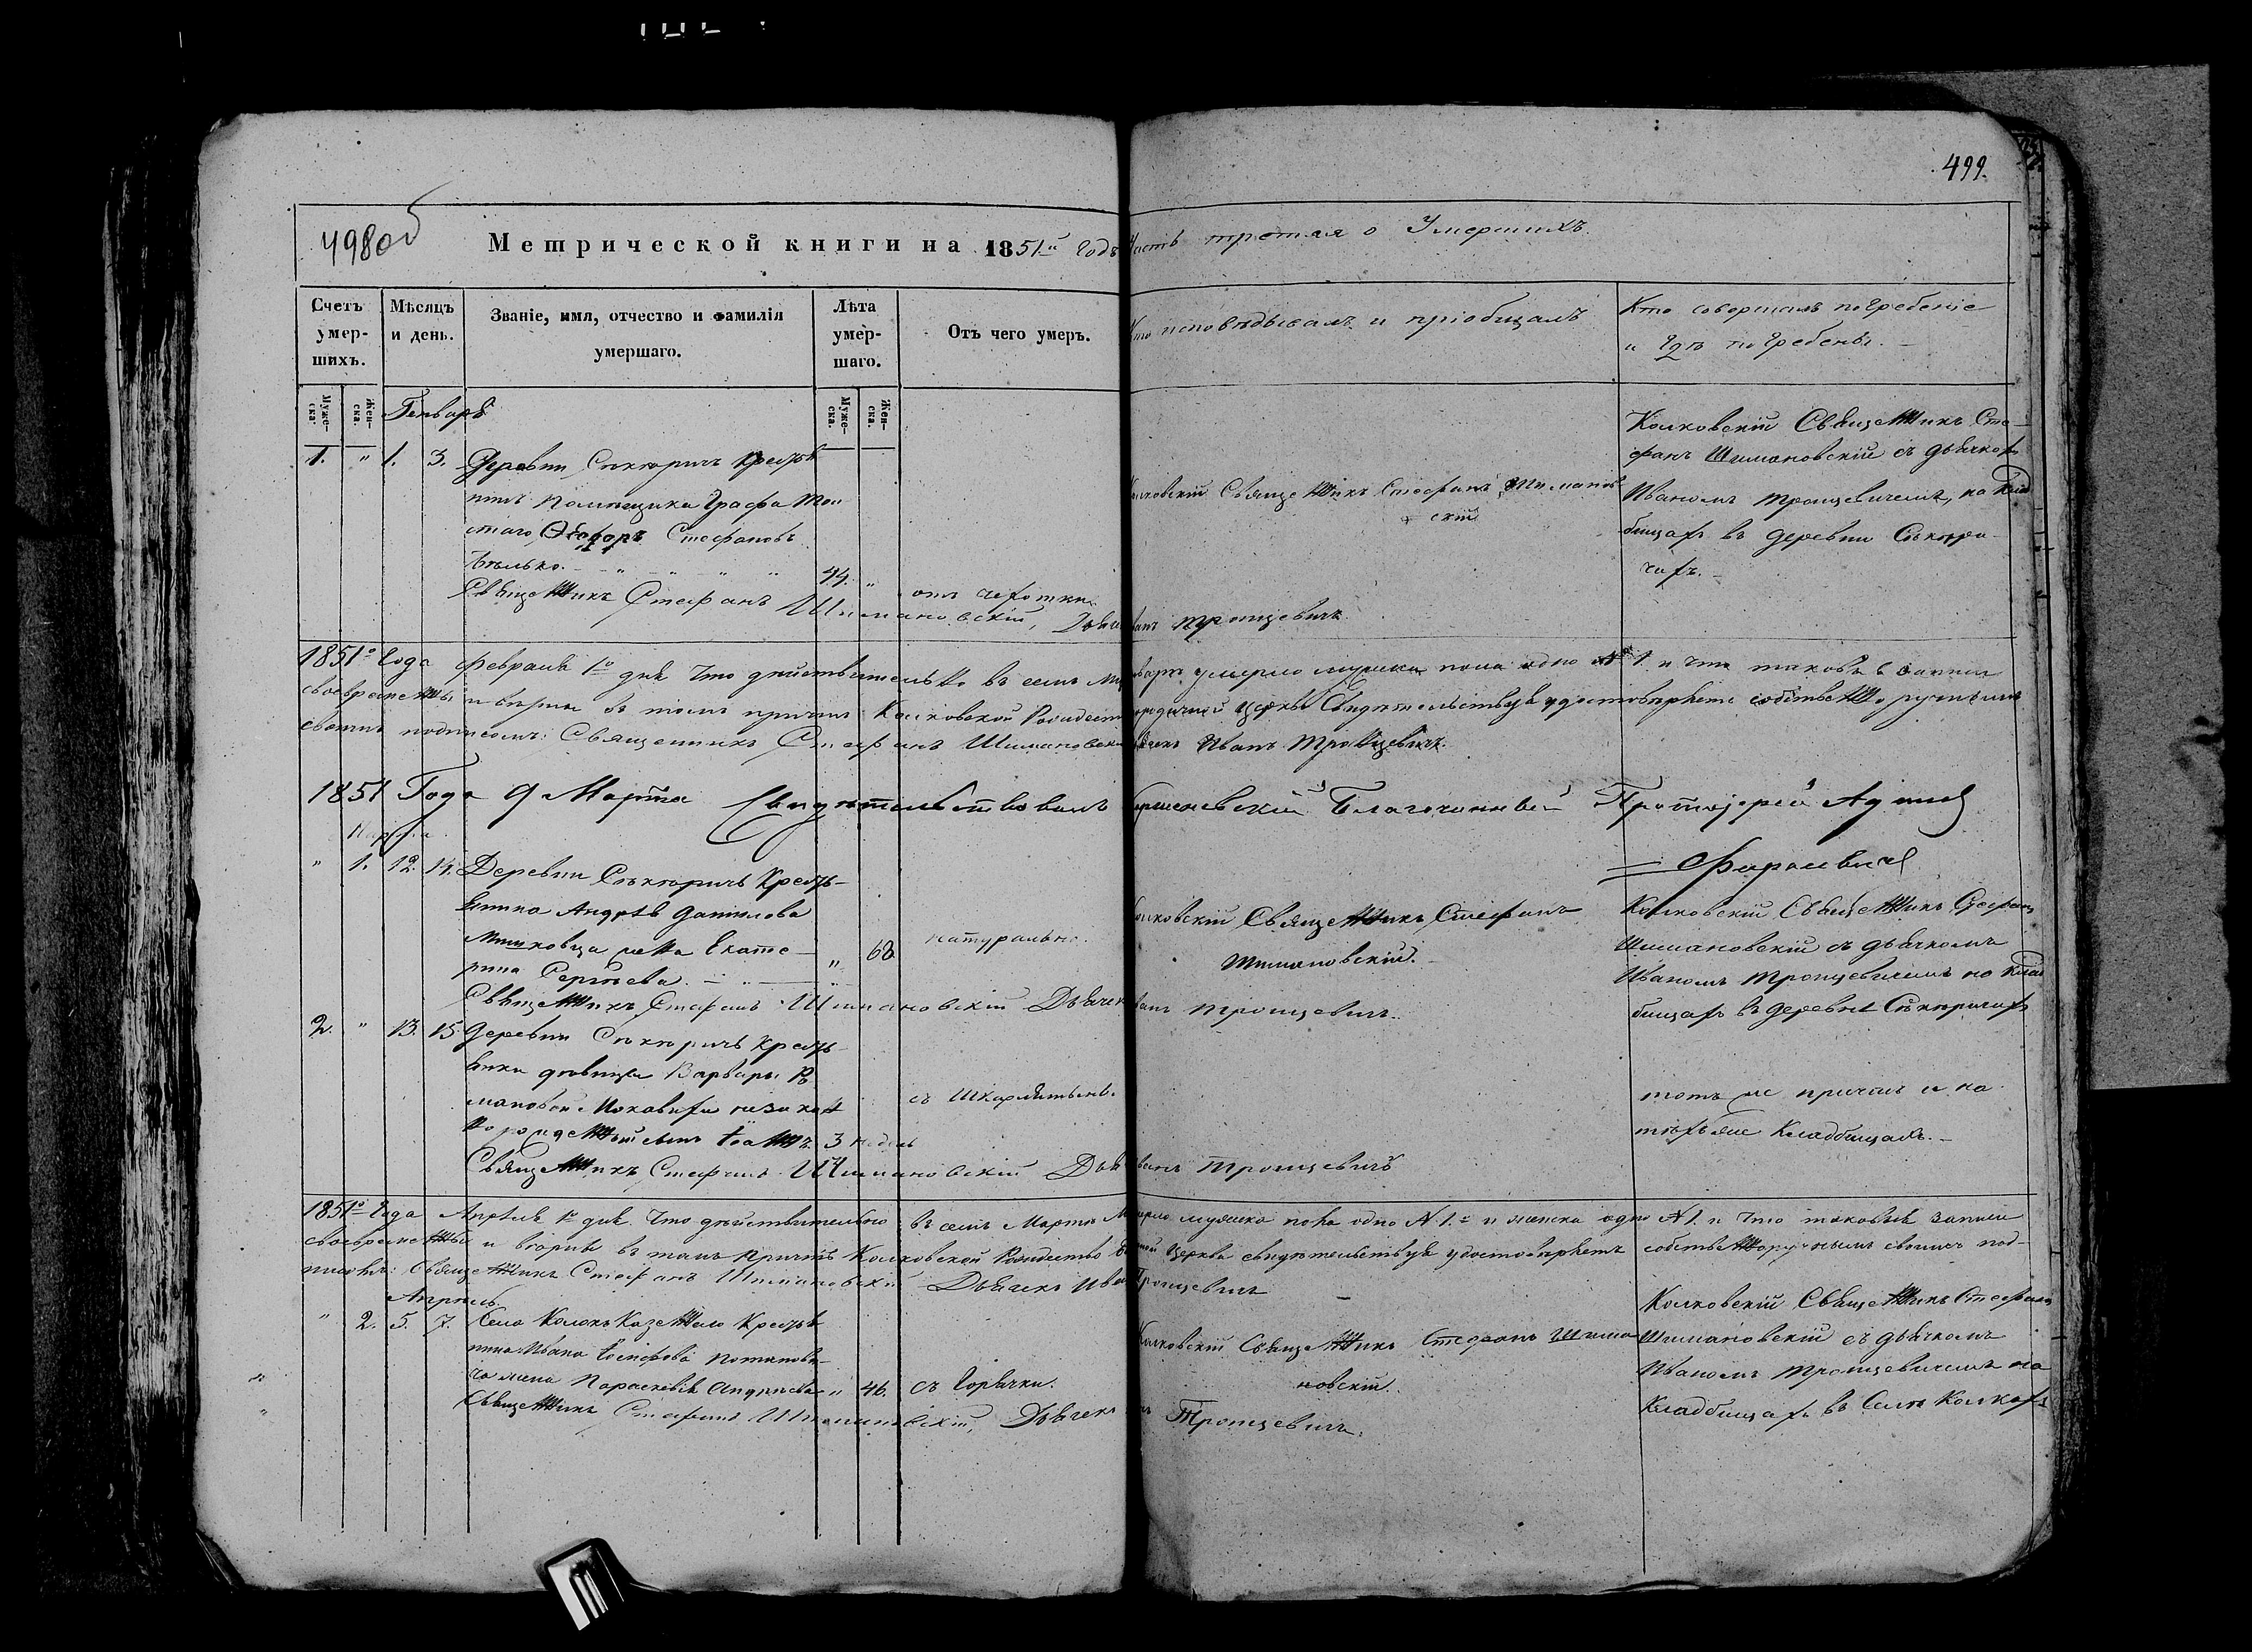 498об
499.
Метрической книги на 1851й годъ Часть третая о Умершихъ.
Счетъ умер-шихъ.
Мѣсяцъ и день.
Званіе, имя, отчество и фамилія
умершаго.
Лѣта умер-шаго.
Отъ чего умеръ.
Кто исповѣдывалъ и пріобщалъ
Кто совершалъ погребеніе
и гдѣ погребены.
Муже-ска.
Жен-ска.
Генварь
Муже-ска.
Жен-ска.
1. " 1. 3. Деревни Секиричъ Крестья
нинъ Помѣщика Графа Тол
стаго, Ѳеодоръ Стефановъ
Бѣлько. 44. "
отъ чахотки
Колковскій Священникъ Стефанъ Шиманов
скій
Колковскій Священникъ Сте-
фанъ Шимановскій съ дьячкомъ
Иваномъ Троцевичемъ, на клад
бищахъ въ деревни Секири-
чахъ.
Священникъ Стефанъ Шимановскій, Дьячекъ Иванъ Троцевичъ.
1851го Года Февраля 1о дня Что дѣйствительно въ семъ умерло мужска пола одно №1. и что таковыя записи
своевременны и вѣрны въ томъ причтъ Колковской Рождество Богородичной Церкви свидѣтельствуя удостовѣряетъ собственноручнымъ
своимъ подписомъ: Священникъ Стефанъ Шимановскій Дьячекъ Иванъ Троцевичъ.
1851 Года 9 Марта Свидѣтельствовалъ Благочинный Протоіерей
Марта.
" 1. 12. 14. Деревни Секиричъ Кресть-
янина Андрея Данилова
Мишковца жена Екате-
рина Сергѣева. " 62
натурально.
Колковскій Священникъ Стефанъ
Шимановскій.
Колковскій Священникъ Стефанъ
Шимановскій съ дьячкомъ
Иваномъ Троцевичемъ на клад
бищахъ въ деревнѣ Секиричахъ
Священникъ Стефанъ Шимановскій Дьячекъ Иванъ Троцевичъ.
2. " 13. 15. Деревни Секиричъ Кресть-
янки дѣвицы Варвары Ро
мановой незакон
норожденный сынъ Іоаннъ. 3 недель
съ Шкарлятыны.
тотъ же причтъ и на
тѣхъ же Кладбищахъ.
Священникъ Стефанъ Шимановскій Дьячекъ Иванъ Троцевичъ
1851го Года Апрѣля 1о дня. Что дѣйствительно въ семъ Мартѣ умерло мужска пола одно №1. и женска одно №1. и что таковыя записи
своевременны и вѣрны въ томъ причтъ Колковской Рождество Церкви свидѣтельствуя удостовѣряетъ собственноручнымъ своимъ под-
писомъ: Священникъ Стефанъ Шимановскій Дьячекъ Иванъ Троцевичъ
Апрѣль.
" 2. 5. 7. Села Колокъ Казеннаго Крестья
нина Ивана Іосифова Потапови-
ча жена Параскевія Андреева " 46.
съ Горячки.
Колковскій Священникъ Стефанъ Шима
новскій.
Колковскій Священникъ Стефанъ
Шимановскій съ дьячкомъ
Иваномъ Троцевичемъ на
Кладбищахъ въ Селѣ Колкахъ
Священникъ Стефанъ Шимановскій, Дьячекъ Троцевичъ.